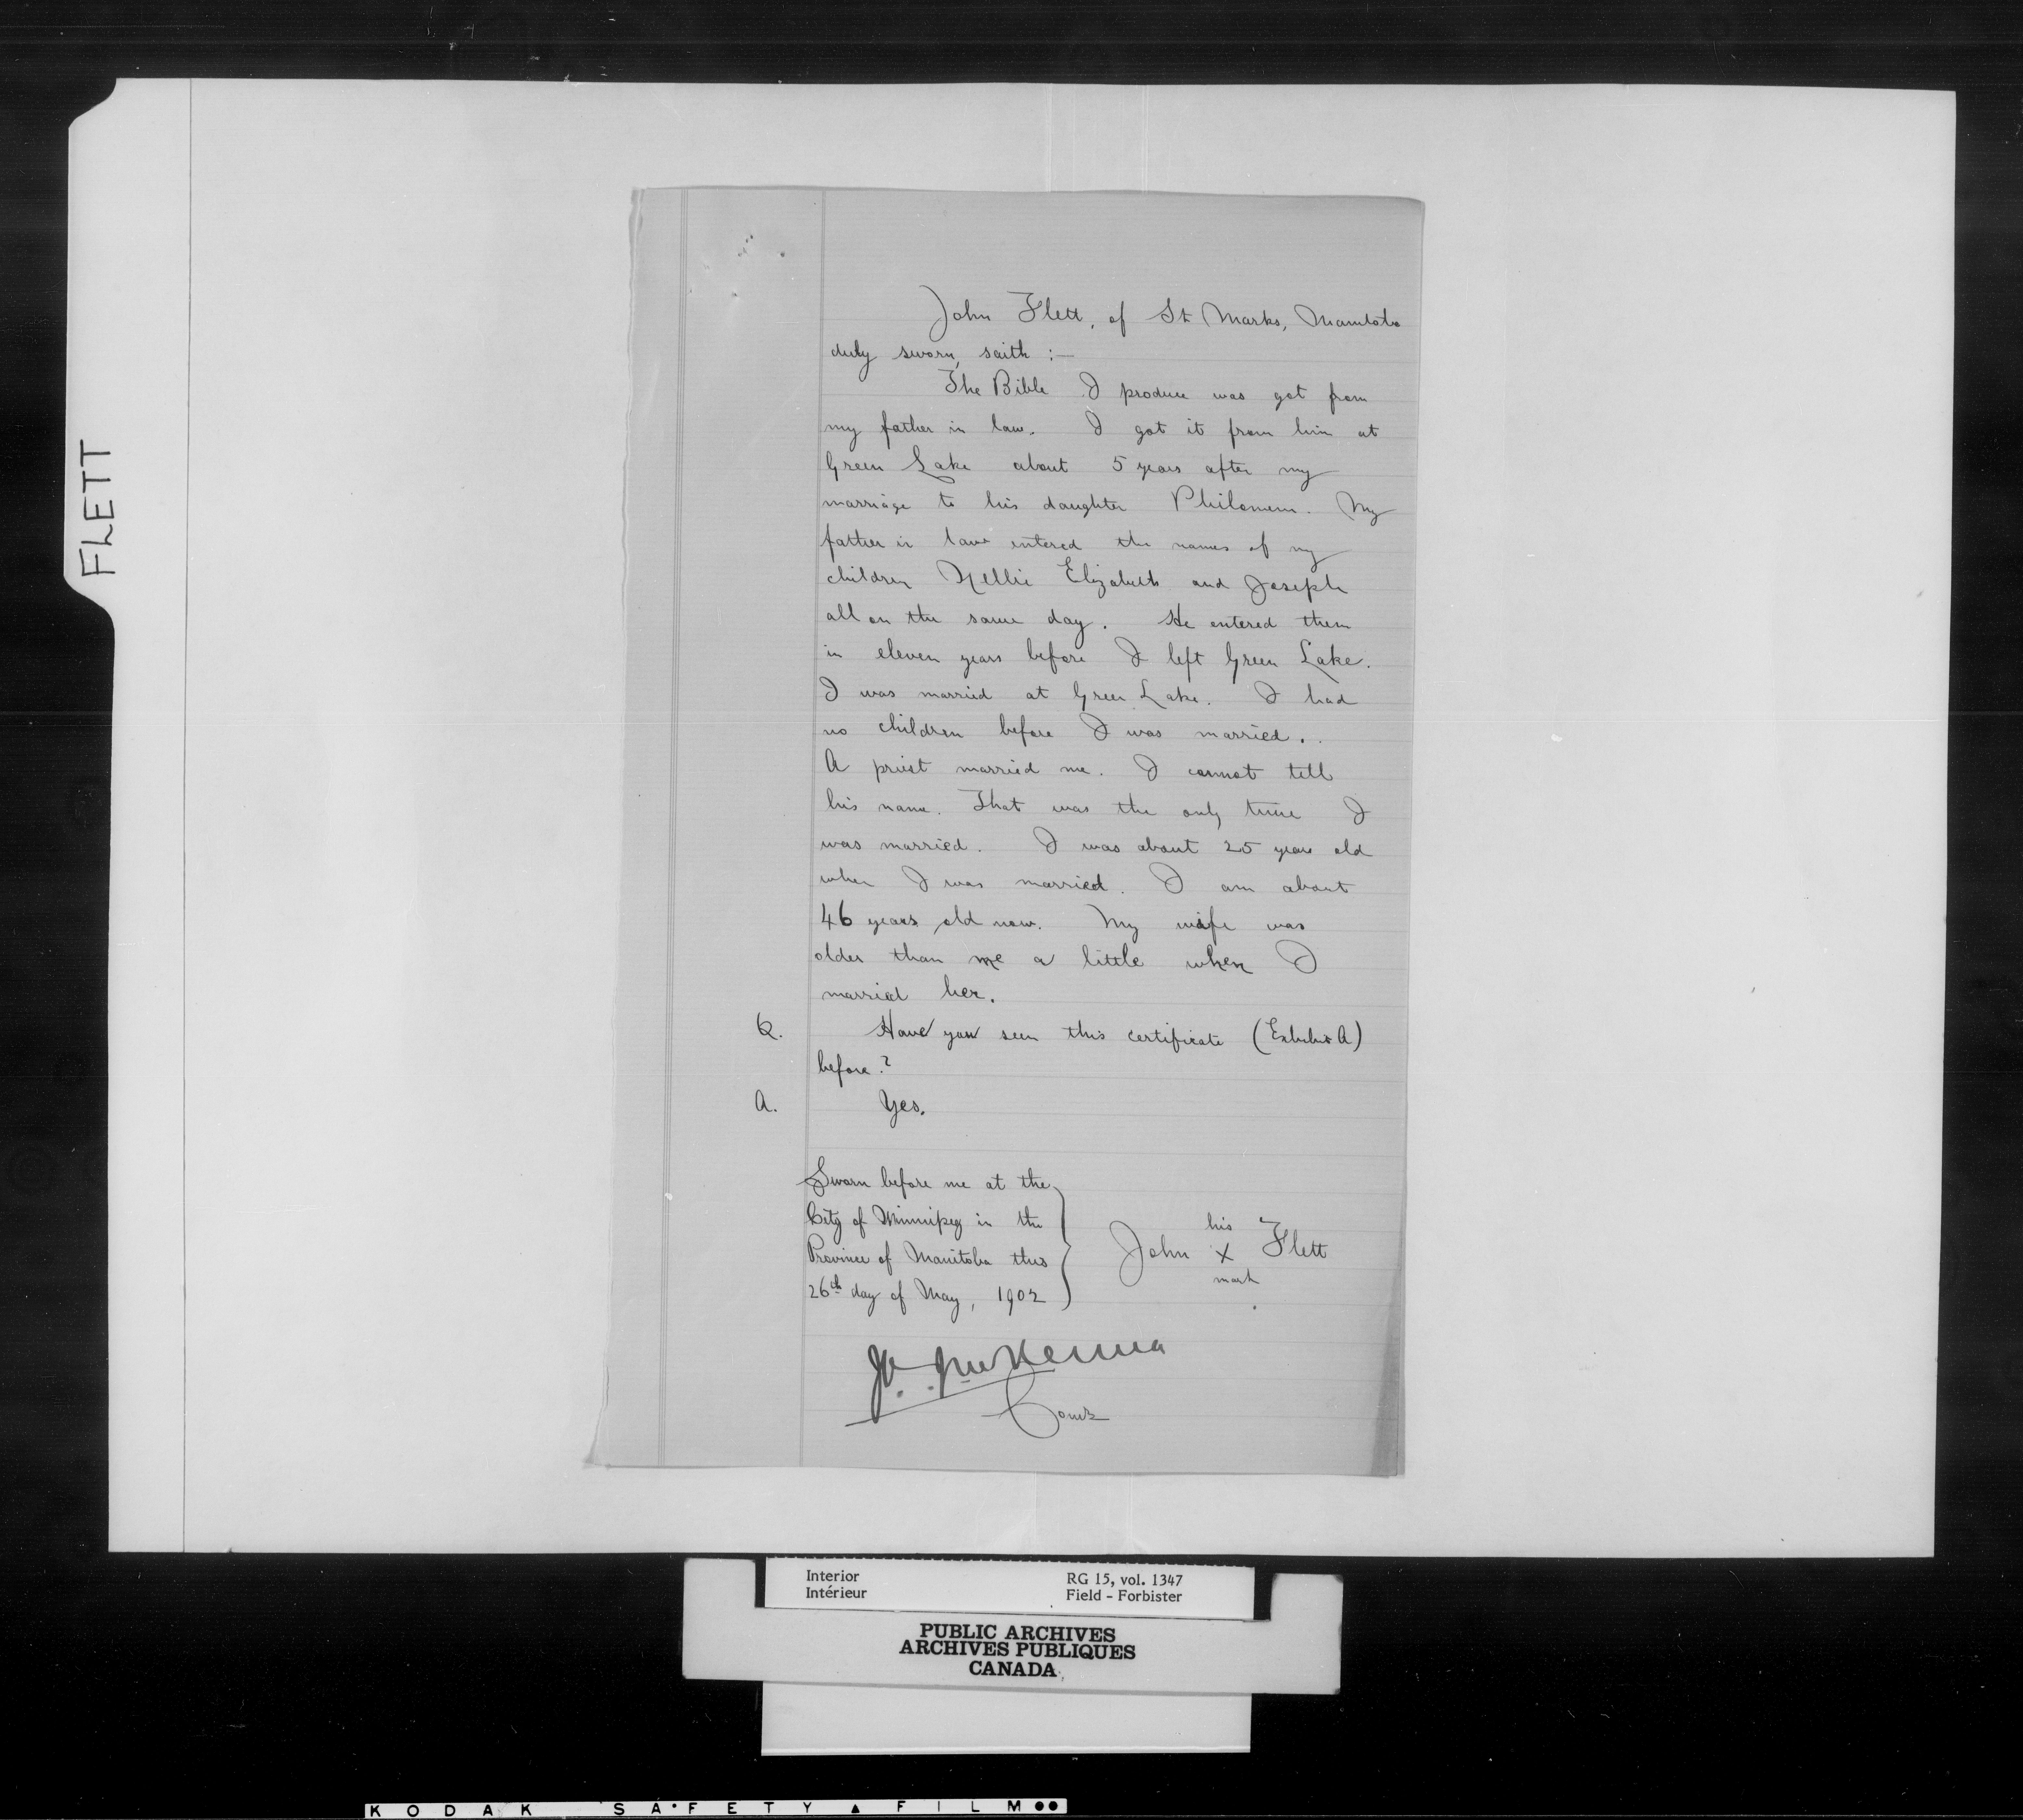 FLETT
John Flett, of St Marks, Manitoba
duly sworn, saith :—
The Bible I produce was got from
my father in law. I got it from him at
Green Lake about 5 years after my
marriage to his daughter Philomene. My
father in law entered the names of my
children Nellie Elizabeth and Joseph
all on the same day. He entered them
in eleven years before I left Green Lake.
I was married at Green Lake. I had
no children before I was married.
A priest married me. I cannot tell
his name. That was the only time I
was married. I was about 25 years old
when I was married. I am about
46 years old now. My wife was
older than me a little when I
married her.
Q. Have you seen this certificate (Exhibit A)
before?
A. Yes.
Sworn before me at the
City of Winnipeg in the
Province of Manitoba this
26th day of May, 1902
his
John X Flett
mark
McKenna
Comr
Interior RG 15, vol. 1347
Intérieur Field - Forbister
PUBLIC ARCHIVES
ARCHIVES PUBLIQUES
CANADA
KODAK SAFETY FILM